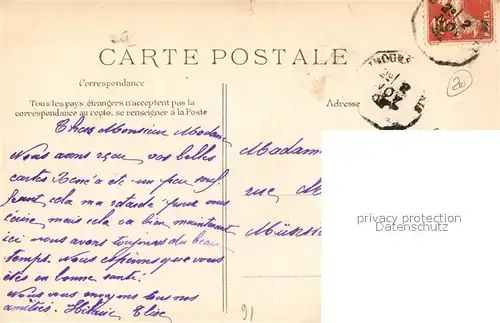 CARTE POSTALE
Correspondance
Tous les pays étrangers n'acceptent pas la
correspondance au recto, se renseigner à la Poste
Adresse
Chers Monsieur Madame
Nous avons reçu vos belles
cartes René a été un peu souf
frant cela m'a retardé pour vous
écrire mais cela va bien maintenant
ici nous avons toujours du beau
temps. Nous espérons que vous
êtes en bonne santé.
Nous vous envoyons tous nos
amitiés. Hilaire Elise
Madam
rue M
privacy protection
Datenschutz
20
91